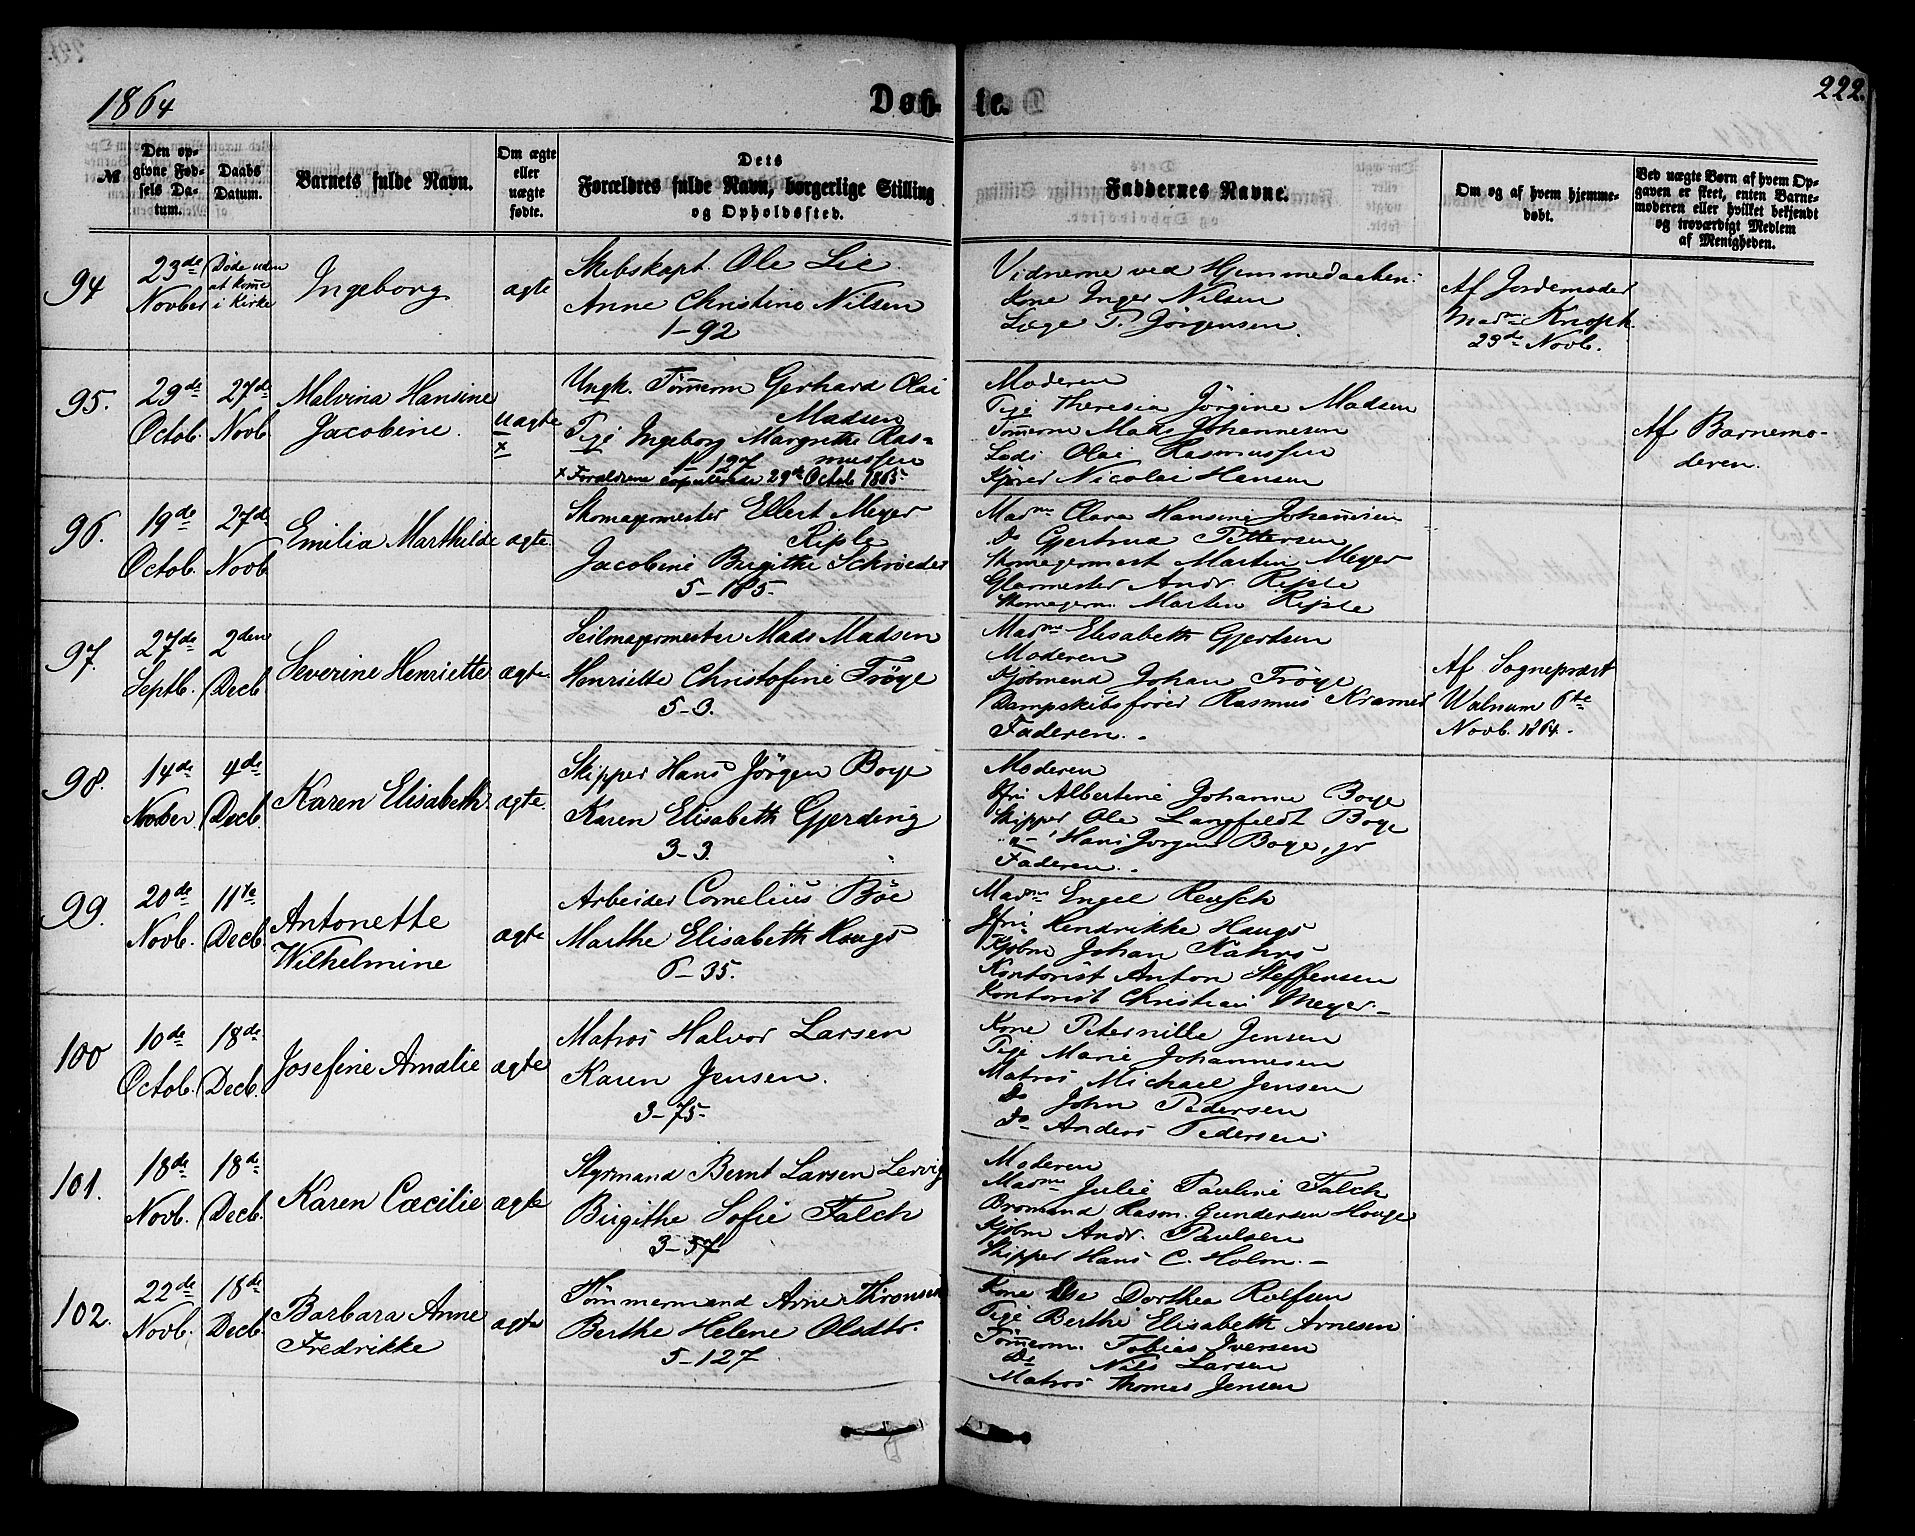 1864
Døbte.
222.
№
Den opgivne Fødsels Datum.
Daabs Datum.
Barnets fulde Navn.
Om ægte eller uægte fødte.
Dets Forældres fulde Navn, borgerlige Stilling og Opholdssted.
Faddernes Navne.
Om og af hvem hjemmedøbt.
Ved uægte Børn af hvem Opgaven er skeet, enten Barnemoderen eller hvilket bekjendt og troværdigt Medlem af Menigheden.
94
23de Novber
Døde uden at komme i Kirke
Ingeborg
ægte
Skibskapt. Ole Lie
Anne Christine Nilsen
1-92
Vidnerne ved Hjemmedaaben:
Kone Inger Nilsen
Læge P. Jörgensen
Af Jordemoder
Madme Knoph
23de Novb.
95.
29de Octob.
27de Novb
Malvina Hansine
Jacobine.
uægte
x
Ungk. Tømerm Gerhard Olai
Madsen
Pige Ingeborg Margrethe Ras=
mussen
1-127
x Forældrene copulerede 29de Octob 1865.
Moderen
Pige Theresia Jörgine Madsen
Tømerm Mads Johannesen
Lods Olai Rasmussen
Kjører Nicolai Hansen
Af Barnemo-
deren.
96.
19de Octob.
27de Novb
Emilia Marthilde
ægte.
Skomagermester Ellert Meyer
Riple
Jacobine Birgithe Schrøeder
5-185.
Madme Clara Hansine Johannesen
Do Gjertrud Pettersen
Skomagermest Martin Meyer
Glarmester Andr. Riple
Skomagerm. Morten Riple
97.
27de Septb.
2den Decb
Severine Henriette
ægte.
Seilmagermester Mads Madsen
Henriette Christofine Tröye
5-3.
Madme Elisabeth Gjertsen
Moderen
Kjöbmand Johan Tröye
Dampskibsfører Rasmus Kramer
Faderen.
Af Sogneprest
Walnum 6te
Novb. 1864.
98.
14de Novber.
4de Decb.
Karen Elisabeth.
ægte.
Skipper Hans Jörgen Boye
Karen Elisabeth Gjerding
3-3.
Moderen
Jfri Albertine Johanne Boye
Skipper Ole Langfeldt Boye
" Hans Jörgen Boye, jr
Faderen.
99.
20de Novb.
11te Decb.
Antonette
Wilhelmine
ægte
Arbeider Cornelius Böe
Marthe Elisabeth Haugs
6-35.
Madme Engel Reusch
Jfri Hendrikke Haugs
Kjöbm Johan Kahrs
Kontorist Anton Steffensen
Kontorist Christian Meyer.
100
10de Octob.
18de Decb.
Josefine Amalie
ægte
Matros Halvor Larsen
Karen Jensen.
3-75.
Kone Peternille Jensen
Pige Marie Johannesen
Matros Michael Jensen
Do John Pedersen
Do Anders Pedersen
101.
18de Novb.
18de Decb.
Karen Cæcilie
ægte
Styrmand Bernt Larsen Lervig
Birgithe Sofie Falch
3-57
Moderen
Madme Julie Pauline Falch
Bromand Rasm. Gundersen Hauge
Kjöbm Andr. Paulsen
Skipper Hans C. Holm.
102.
22de Novb.
18de Decb.
Barbara Anne
Fredrikke
ægte
Tömmermand Arne Thronsen
Berthe Helene Olsdtr.
5-127
Kone Else Dorthea Rolfsen
Pige Berthe Elisabeth Arnesen
Tömerm. Tobias Iversen
Do Nils Larsen
Matros Thomas Jensen